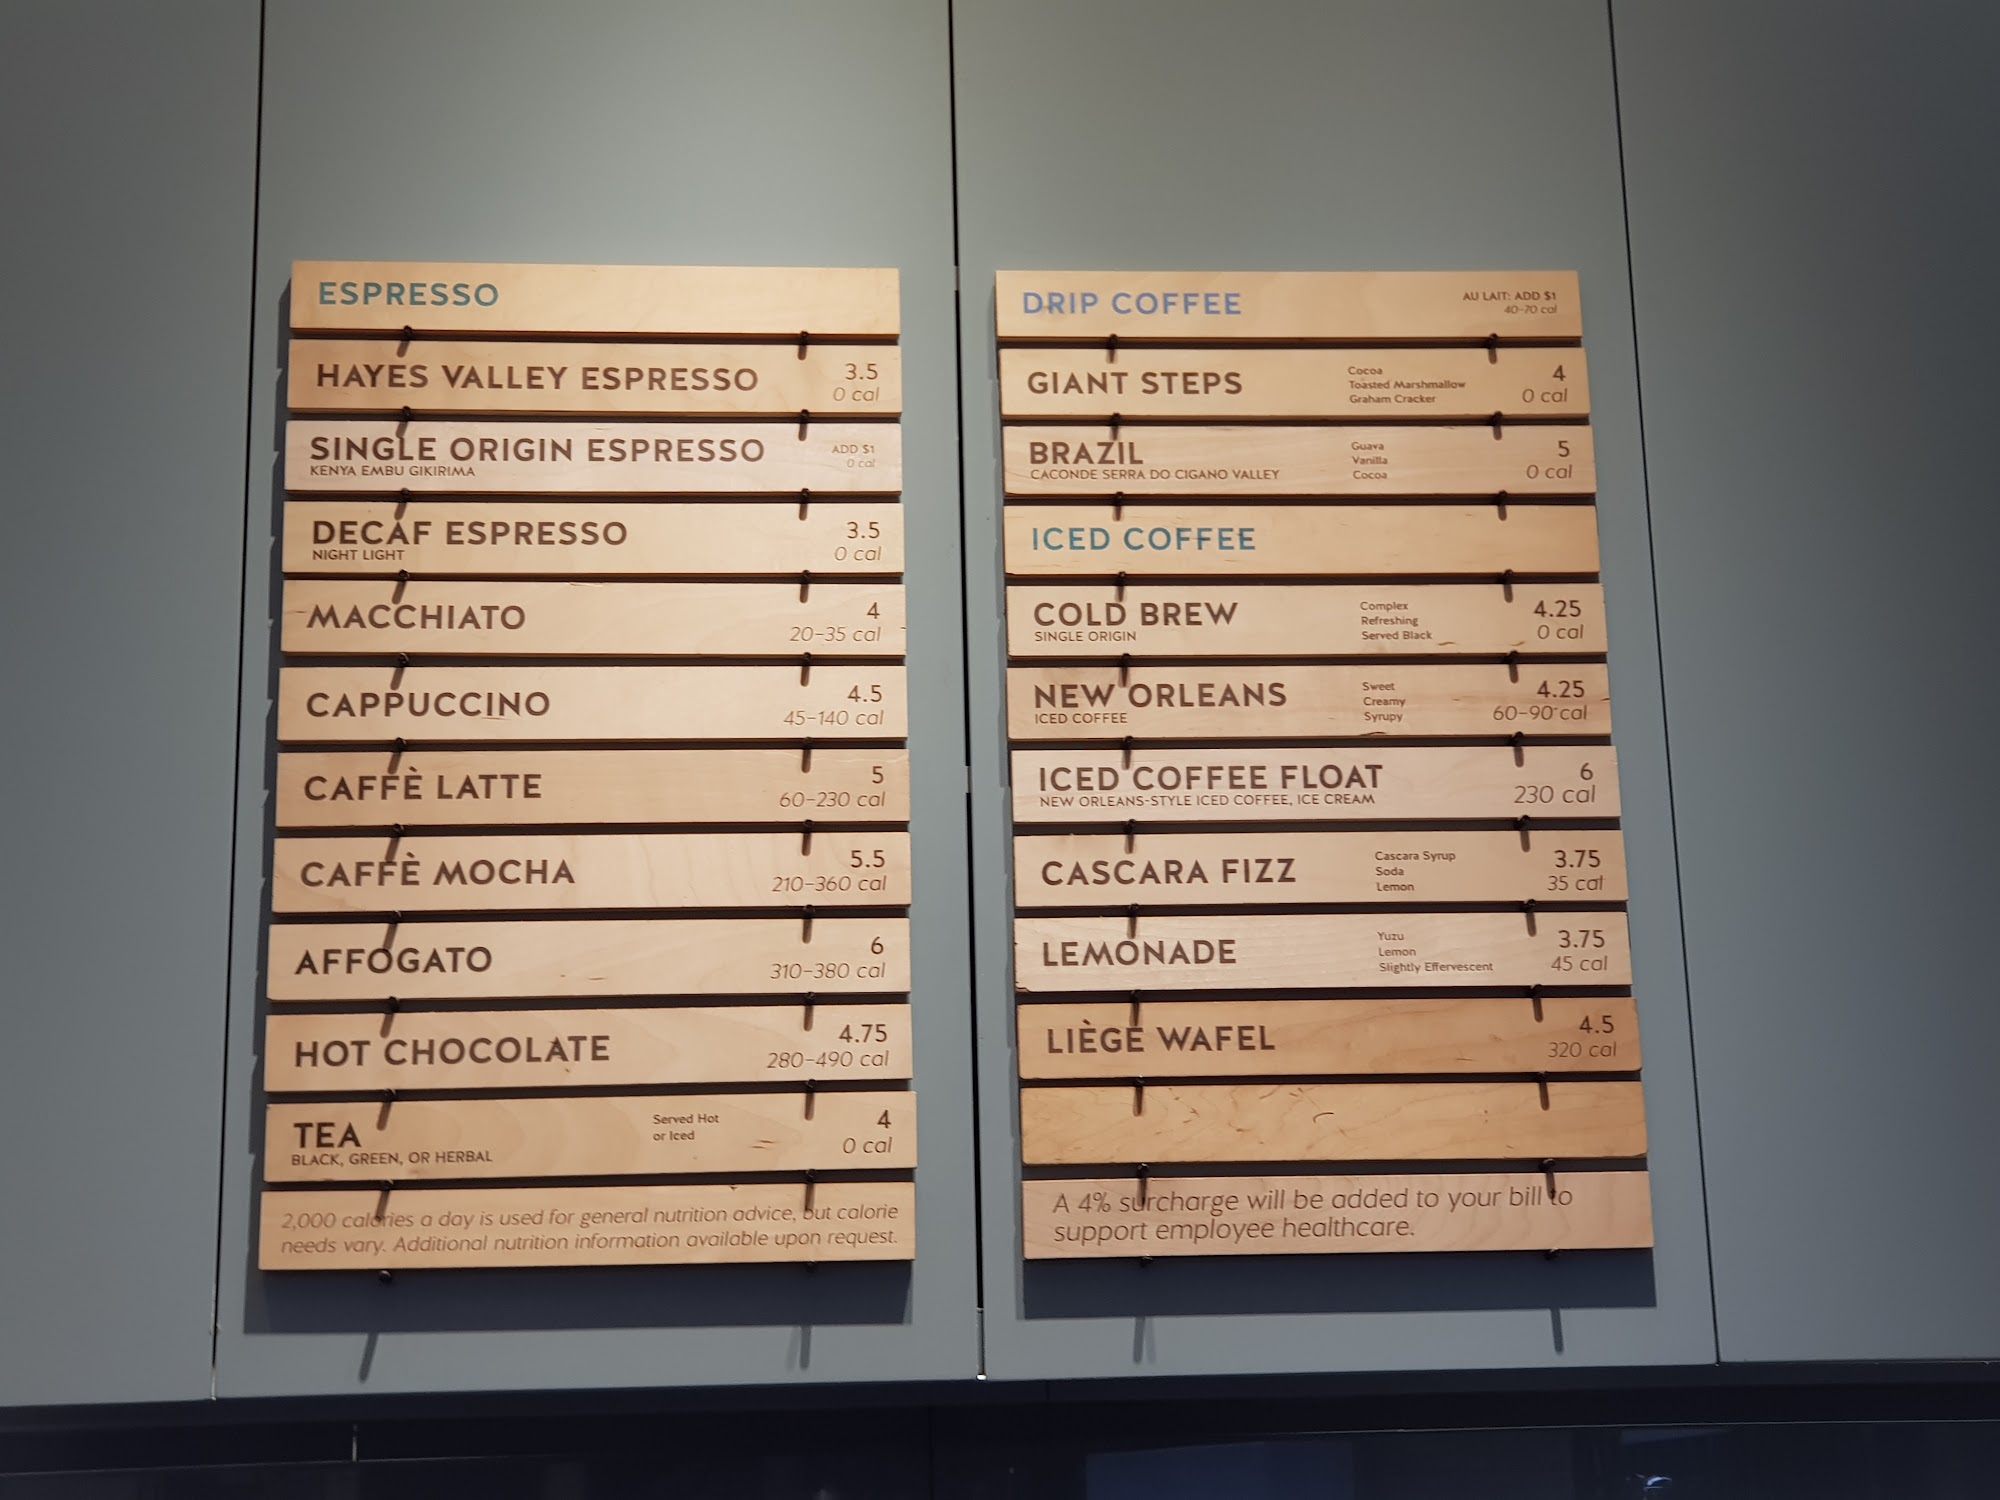 ESPRESSO
HAYES VALLEY ESPRESSO 3.5
0 cal
SINGLE ORIGIN ESPRESSO ADD $1
KENYA EMBU GIKIRIMA 0 cal
DECAF ESPRESSO 3.5
NIGHT LIGHT 0 cal
MACCHIATO 4
20-35 cal
CAPPUCCINO 4.5
45-140 cal
CAFFÈ LATTE 5
60-230 cal
CAFFÈ MOCHA 5.5
210-360 cal
AFFOGATO 6
310-380 cal
HOT CHOCOLATE 4.75
280-490 cal
TEA Served Hot 4
or Iced
BLACK, GREEN, OR HERBAL 0 cal
2,000 calories a day is used for general nutrition advice, but calorie
needs vary. Additional nutrition information available upon request.
DRIP COFFEE AU LAIT: ADD $1
40-70 cal
GIANT STEPS Cocoa 4
Toasted Marshmallow
Graham Cracker 0 cal
BRAZIL Guava 5
Vanilla
CACONDE SERRA DO CIGANO VALLEY Cocoa 0 cal
ICED COFFEE
COLD BREW Complex 4.25
Refreshing
SINGLE ORIGIN Served Black 0 cal
NEW ORLEANS Sweet 4.25
Creamy
ICED COFFEE Syrupy 60-90 cal
ICED COFFEE FLOAT 6
NEW ORLEANS-STYLE ICED COFFEE, ICE CREAM 230 cal
CASCARA FIZZ Cascara Syrup 3.75
Soda
Lemon 35 cal
LEMONADE Yuzu 3.75
Lemon
Slightly Effervescent 45 cal
LIÈGE WAFEL 4.5
320 cal
A 4% surcharge will be added to your bill to
support employee healthcare.